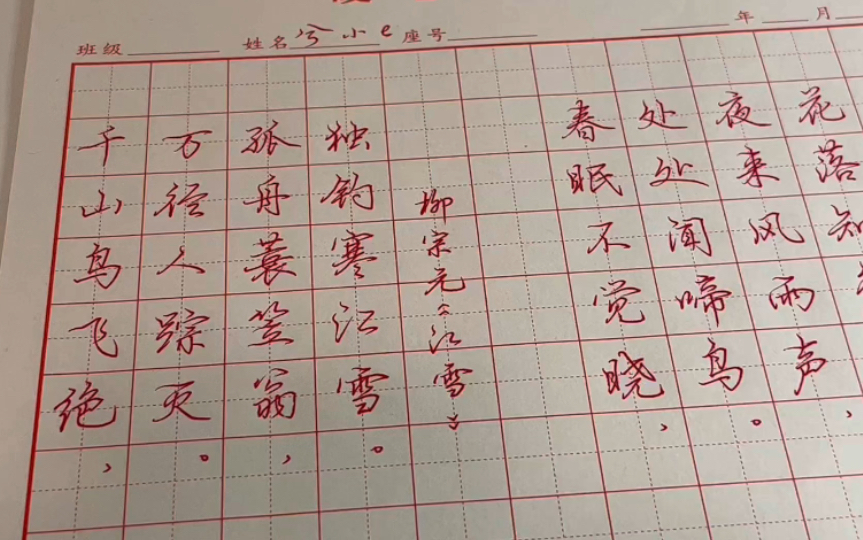 班级 姓名 兮小e 座号 年 月
千山鸟飞绝，
万径人踪灭。
孤舟蓑笠翁，
独钓寒江雪。
柳宗元《江雪》
春眠不觉晓，
处处闻啼鸟。
夜来风雨声，
花落知